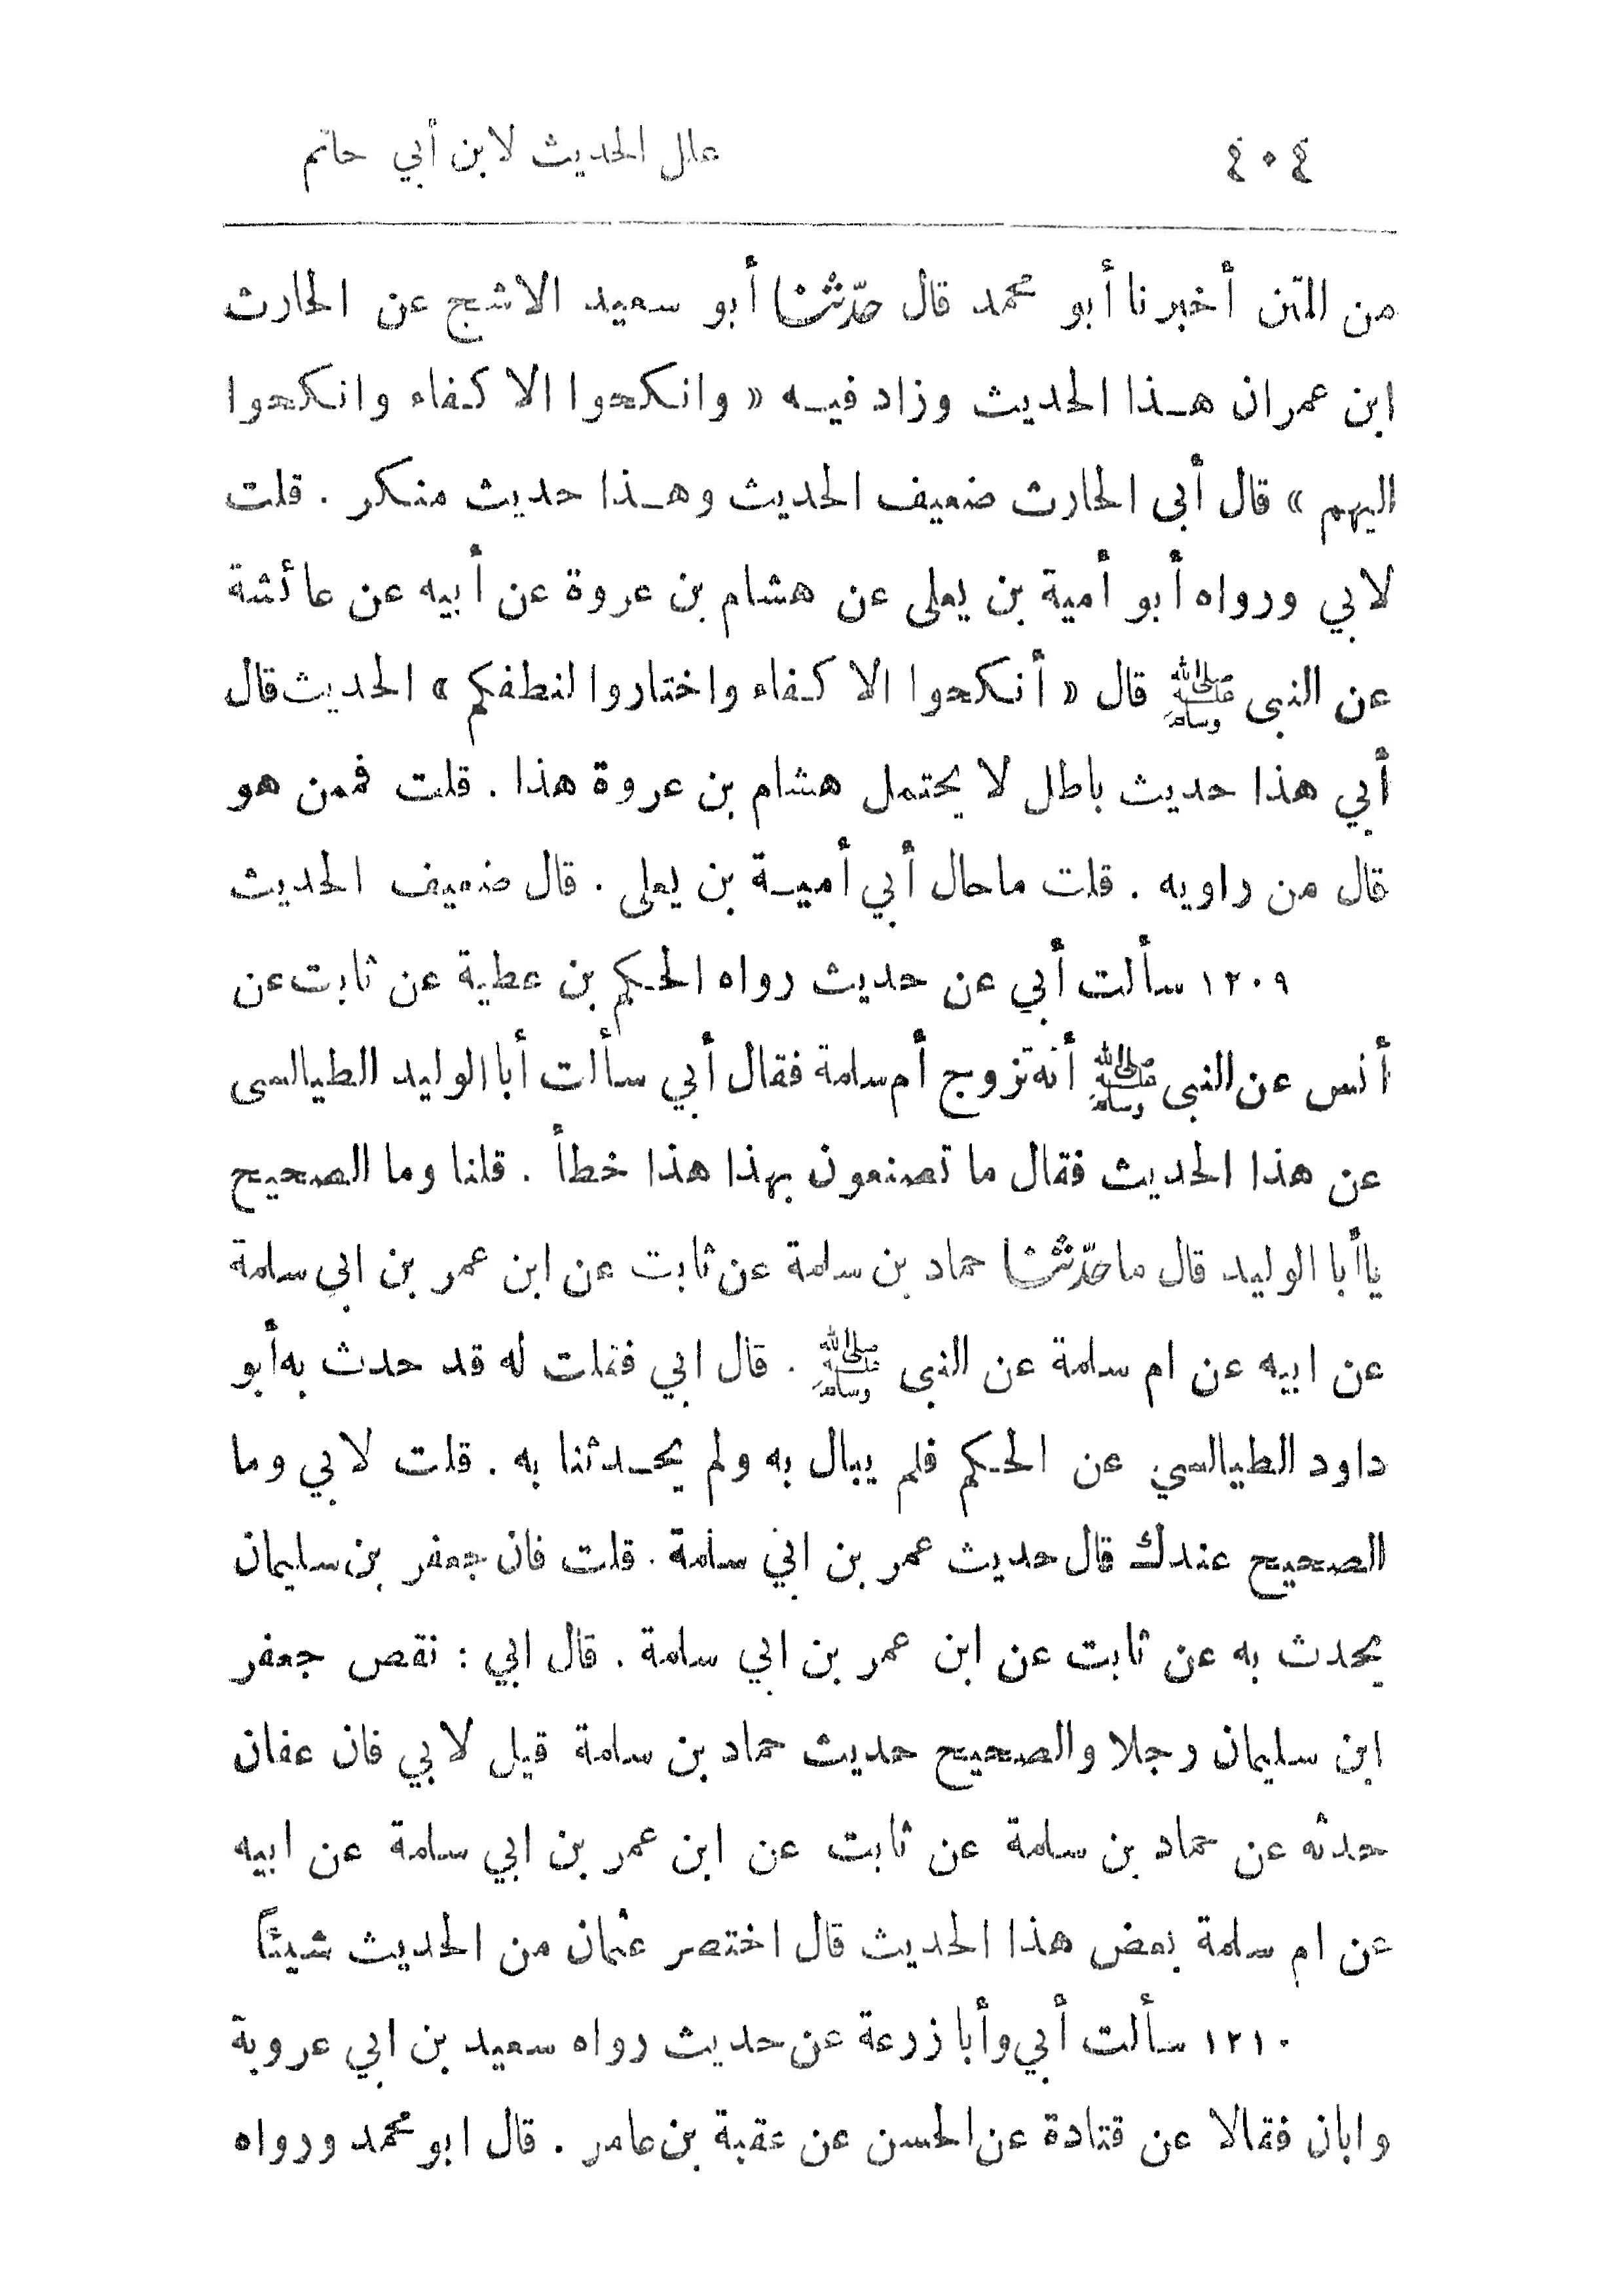 ٤٠٤ علل الحديث لابن أبي حاتم
من المتن أخبرنا أبو محمد قال حدّثنا أبو سعيد الاشج عن الحارث
ابن عمران هـذا الحديث وزاد فيـه « وانكحوا الاكفاء وانكحوا
اليهم » قال أبى الحارث ضعيف الحديث وهـذا حديث منكر . قلت
لابي ورواه أبو أمية بن يعلى عن هشام بن عروة عن أبيه عن عائشة
عن النبى ﷺ قال « أنكحوا الاكفاء واختاروا لنطفكم » الحديث قال
أبي هذا حديث باطل لا يحتمل هشام بن عروة هذا . قلت فممن هو
قال من راويه . قلت ماحال أبي أميـة بن يعلى . قال ضعيف الحديث
١٢٠٩ سألت أبي عن حديث رواه الحكم بن عطية عن ثابت عن
أنس عن النبى ﷺ أنه تزوج أم سلمة فقال أبي سألت أبا الوليد الطيالسى
عن هذا الحديث فقال ما تصنعون بهذا هذا خطأ . قلنا وما الصحيح
ياأبا الوليد قال ماحدّثنا حماد بن سلمة عن ثابت عن ابن عمر بن ابي سلمة
عن ابيه عن ام سلمة عن النبى ﷺ . قال ابي فقلت له قد حدث به أبو
داود الطيالسي عن الحكم فلم يبال به ولم يحـدثنا به . قلت لابي وما
الصحيح عندك قال حديث عمر بن ابي سلمة . قلت فان جعفر بن سليمان
يحدث به عن ثابت عن ابن عمر بن ابي سلمة . قال ابي : نقص جعفر
ابن سليمان رجلا والصحيح حديث حماد بن سلمة قيل لابي فان عفان
حدثه عن حماد بن سلمة عن ثابت عن ابن عمر بن ابي سلمة عن ابيه
عن ام سلمة بعض هذا الحديث قال اختصر عثمان من الحديث شيئاً
١٢١٠ سألت أبي وأبا زرعة عن حديث رواه سعيد بن ابي عروبة
وابان فقالا عن قتادة عن الحسن عن عقبة بن عامر . قال ابو محمد ورواه